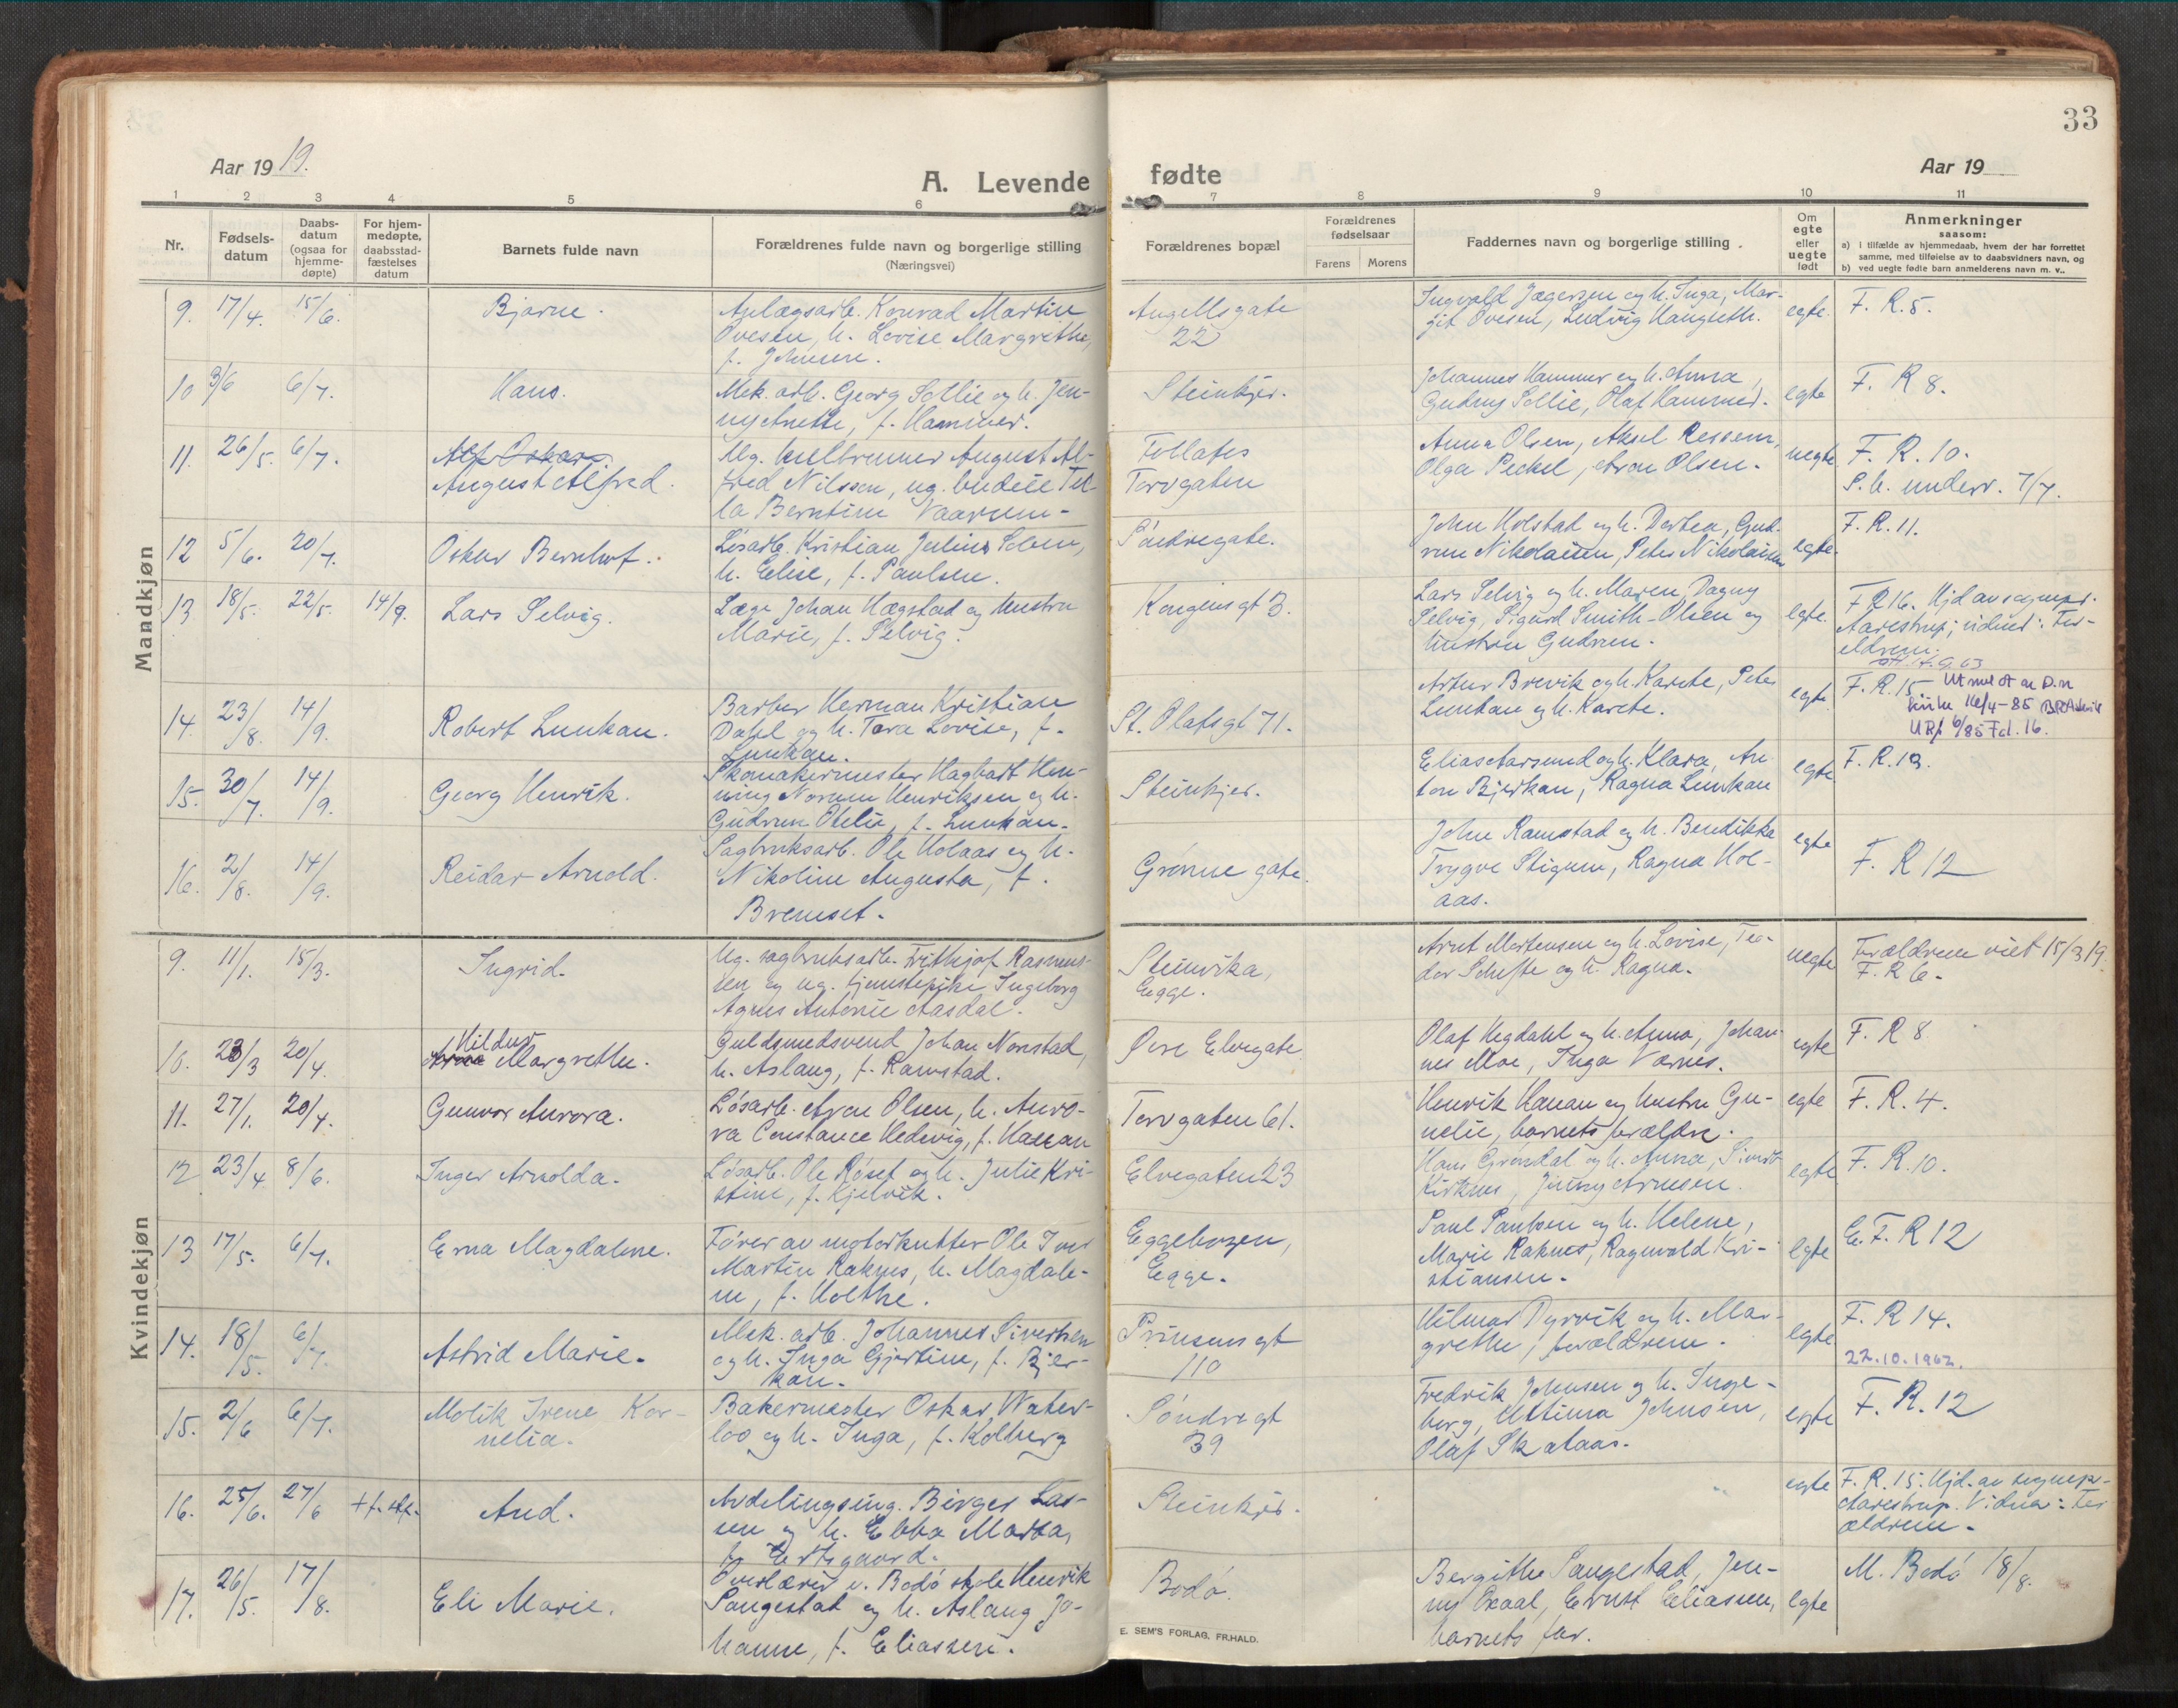 33
Aar 1919.
A. Levende fødte
Aar 19
1 2 3 4 5 6 7 8 9 10 11
Nr.
Fødsels-
datum
Daabs-
datum
(ogsaa for
hjemme-
døpte)
For hjem-
medøpte,
daabsstad-
fæstelses
datum
Barnets fulde navn
Forældrenes fulde navn og borgerlige stilling
(Næringsvei)
Forældrenes bopæl
Forældrenes
fødselsaar
Farens Morens
Faddernes navn og borgerlige stilling
Om
egte
eller
uegte
født
Anmerkninger
saasom:
a) i tilfælde av hjemmedaab, hvem der har forrettet
samme, med tilføielse av to daabsvidners navn, og
b) ved uegte fødte barn anmelderens navn m. v..
Mandkjøn
9. 17/4. 15/6.
Bjarne.
Anlægsarb. Konrad Martin
Ovesen, h. Lovise Margrethe,
f. Johnsen.
Angellsgate
22
Ingvald Jægersen og h. Inga, Mar-
git Ovesen, Ludvig Haugseth.
egte.
F. R. 5.
10 3/6 6/7.
Hans.
Mek. arb. Georg Sellie og h. Jen-
ny Anette, f. Hammer.
Steinkjer.
Johannes Hammer og h. Anna,
Gudny Sellie, Olaf Hammer.
egte
F. R 8.
11. 26/5. 6/7.
Alf Oskar.
August Alfred.
Ug. kulbrenner August Al-
fred Nilssen, ug. budeie Tel-
la Berntine Vaarum-
Follafos
Torvgaten
Anna Olsen, Aksel Ressem,
Olga Peckel, Aron Olsen.
uegte
F. R. 10.
S. h. underr. 7/7.
12 5/6. 20/7.
Oskar Bernhof.
Løsarb. Kristian Julius Solem,
h. Elise, f. Paulsen.
Søndregate.
John Holstad og h. Dortea, Gud-
run Nikolaisen, Peter Nikolaisen
egte.
F. R. 11.
13 18/5. 22/5. 14/9.
Lars Selvig.
Læge Johan Hægstad og hustru
Marie, f. Selvig.
Kongensgt 3.
Lars Selvig og h. Maren, Dagny
Selvig, Sigurd Smith-Olsen og
hustru Gudrun.
egte.
F R 16. Hjd av sognepr.
Aarestrup; vidner: For-
ældrene.
14. 23/8. 14/9.
Robert Lunkan.
Barber Herman Kristian
Dahl og h. Tora Lovise, f.
Lunkan.
St. Olafsgt 71.
Artur Brevik og h. Karete, Peter
Lunkan og h. Karete.
egte.
F. R. 15.
Utmeldt av D.n
kirke 16/4-85
15. 30/7. 14/9.
Georg Henrik.
Skomakermester Hagbart Hen-
ning Norum Henriksen og h.
Gudrun Otelie, f. Lunkan.
Steinkjer.
Elias Aarsund og h. Klara, An-
ton Bjerkan, Ragna Lunkan
egte
F. R. 13.
16. 2/8. 14/9.
Reidar Arnold.
Sagbruksarb. Ole Holaas og h.
Nikoline Augusta, f.
Bremset.
Grønne gate.
John Ramstad og h. Bendikka
Trygve Stigum, Ragna Hol-
aas.
egte
F. R 12
Kvindekjøn
9. 11/1. 15/3.
Ingrid.
Ug. sagbruksarb. Frithjof Rasmus-
sen og ug. tjenestepike Ingeborg
Agnes Antonie Aasdal.
Steinvika,
Egge.
Arnt Mortensen og h. Lovise, Teo-
dor Schefte og h. Ragna.
uegte
Forældrene viet 15/3 19.
F. R 6.
10. 23/3 20/4.
Hildur
Anna Margrethe.
Guldsmedsvend Johan Norstad,
h. Aslaug, f. Ramstad.
Øvre Elvegate.
Olaf Hegdahl og h. Anna, Johan-
nes Moe, Inga Værnes.
egte
F. R 8
11. 27/1. 20/4.
Gunvor Aurora.
Løsarb. Aron Olsen, h. Auro-
ra Constance Hedevig, f. Hanan
Torvgaten 61.
Henrik Hanan og hustru Gu-
nelie, barnets forældre.
egte
F. R. 4.
12 23/4. 8/6.
Inger Arnolda.
Løsarb. Ole Røset og h. Julie Kri-
stine, f. Kjelvik.
Elvegaten 23
Hans Grøndal og h. Anna, Sivert
Kirknes, Jenny Arnesen.
egte
F. R. 10.
13 17/5. 6/7.
Erna Magdalene.
Fører av motorkutter Ole Iver
Martin Raknes, h. Magdale-
ne, f. Holthe.
Eggebogen,
Egge.
Paul Paulsen og h. Helene,
Marie Raknes, Ragnvald Kri-
stiansen.
egte
E. F. R 12
14. 18/5. 6/7.
Astrid Marie.
Mek. arb. Johannes Sivertsen
og h. Inga Gjertine, f. Bjer-
kan.
Prinsensgt
110
Hilmar Dyrvik og h. Mar-
grethe, forældrene.
egte
F. R 14.
22.10.1962.
15. 2/6 6/7.
Molik Irene Kor-
nelia.
Bakermester Oskar Water-
loo og h. Inga, f. Kolberg
Søndregt
39
Fredrik Johnsen og h. Inge-
borg, Ultima Johnsen,
Olaf Skataas.
egte
F. R. 12
16. 25/6. 27/6 + f. stf.
Aud.
Avdelingsing. Birger Las-
sen og h. Ebba Marta,
Steinkjer.
egte
F. R. 15. Hjd. av sognepr.
Aarestrup. Vidner: For-
ældrene.
17. 26/5. 17/8.
Eli Marie.
Overlærer v. Bodø skole Henrik
Sangestad og h. Aslaug Jo-
hanne, f. Eliassen.
Bodø.
Bergithe Sangestad, Jen-
ny Oxaal, Ernst Eliassen,
barnets far.
egte
M. Bodø 18/8.
E. SEM'S FORLAG, FR.HALD.